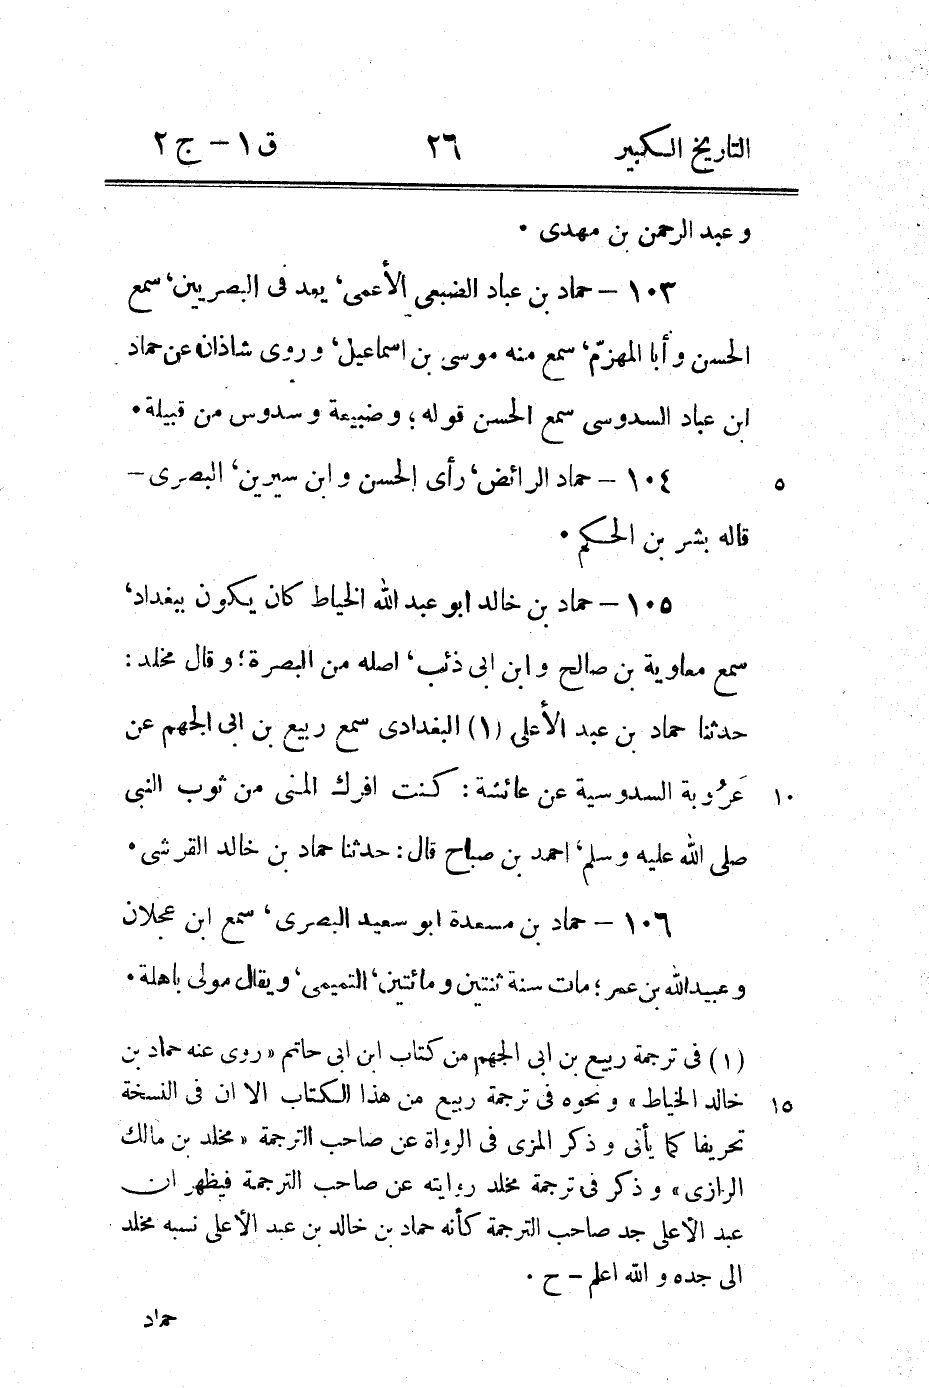 التاريخ الكبير ٢٦ ق ١ – ج ٢
و عبد الرحمن بن مهدى ٠
١٠٣ – حماد بن عباد الضبعى الأعمى، يعد فى البصريين، سمع
الحسن و أبا المهزّم، سمع منه موسى بن اسماعيل، و روى شاذان عن حماد
ابن عباد السدوسى سمع الحسن قوله؛ و ضبيعة و سدوس من قبيلة٠
١٠٤ – حماد الرائض، رأى الحسن و ابن سيرين، البصرى – ٥
قاله بشر بن الحكم ٠
١٠٥ – حماد بن خالد ابو عبد الله الخياط كان يكون ببغداد،
سمع معاوية بن صالح و ابن ابى ذئب، اصله من البصرة؛ و قال مخلد:
حدثنا حماد بن عبد الأعلى (١) البغدادى سمع ربيع بن ابى الجهم عن
عَرُوبة السدوسية عن عائشة: كنت افرك المنى من ثوب النبى ١٠
صلى الله عليه و سلم، احمد بن صباح قال: حدثنا حماد بن خالد القرشى٠
١٠٦ – حماد بن مسعدة ابو سعيد البصرى، سمع ابن عجلان
و عبيدالله بن عمر؛ مات سنة ثنتين و مائتين، التميمى، و يقال مولى باهلة٠
(١) فى ترجمة ربيع بن ابى الجهم من كتاب ابن ابى حاتم «روى عنه حماد بن
خالد الخياط» و نحوه فى ترجمة ربيع من هذا الكتاب الا ان فى النسخة ١٥
تحريفا كما يأتى و ذكر المزى فى الرواة عن صاحب الترجمة «مخلد بن مالك
الرازى» و ذكر فى ترجمة مخلد روايته عن صاحب الترجمة فيظهر ان
عبد الأعلى جد صاحب الترجمة كأنه حماد بن خالد بن عبد الأعلى نسبه مخلد
الى جده و الله اعلم – ح ٠
حماد